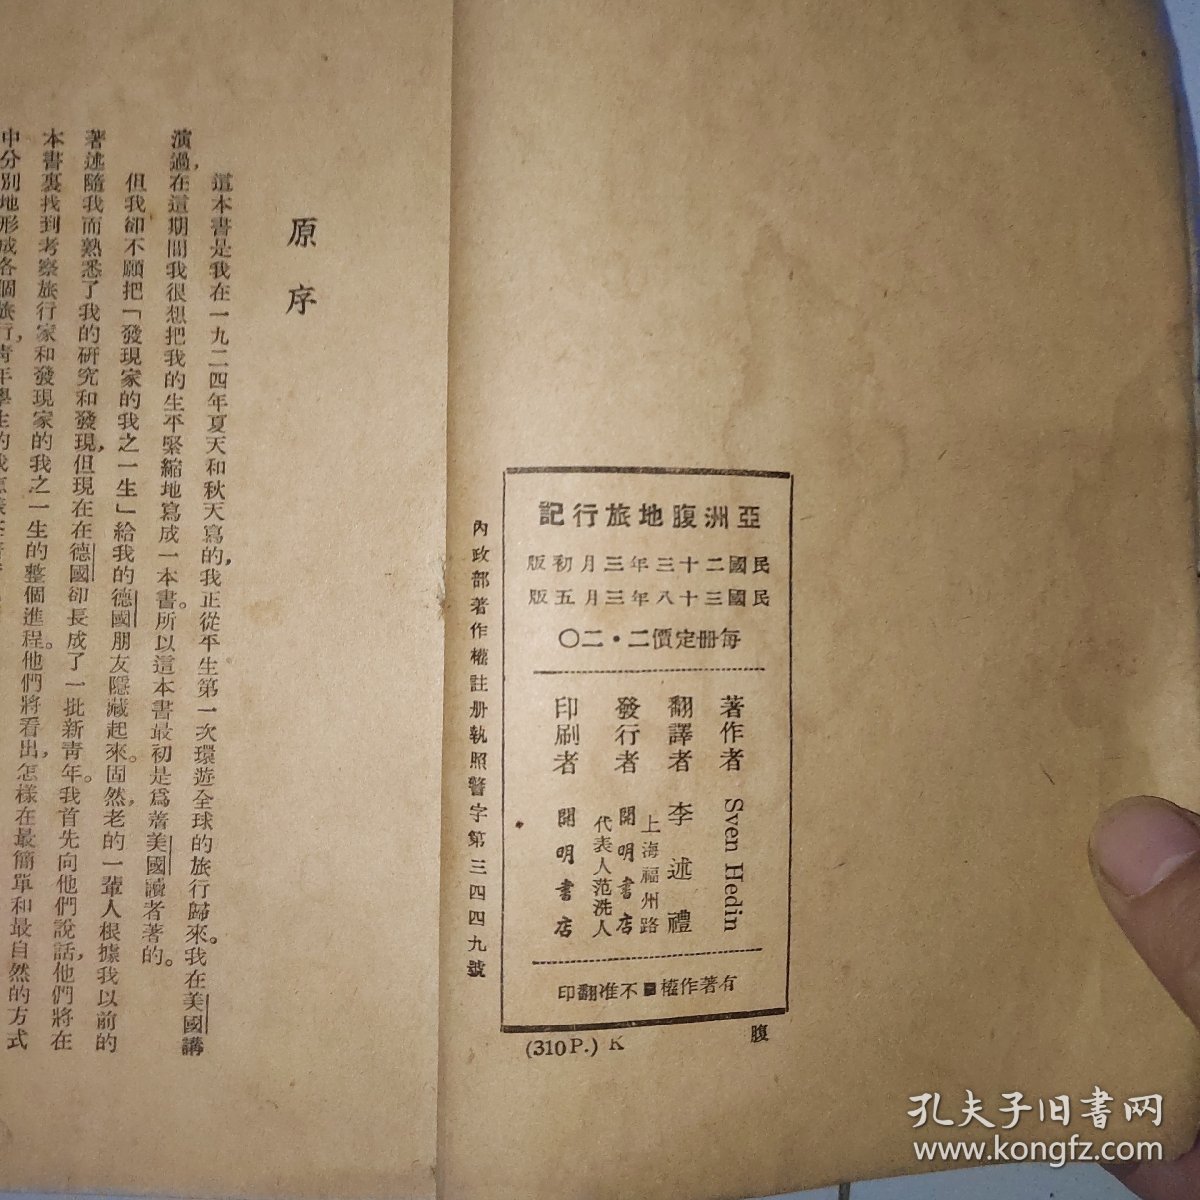 亞洲腹地旅行記
民國二十三年三月初版
民國三十八年三月五版
每冊定價二·二〇
著作者 Sven Hedin
翻譯者 李述禮
上海福州路
發行者 開明書店
代表人范洗人
印刷者 開明書店
有著作權不准翻印
腹
(310P.) K
內政部著作權註冊執照警字第三四四九號
原序
這本書是我在一九二四年夏天和秋天寫的，我正從平生第一次環遊全球的旅行歸來。我在美國講
演過，在這期間我很想把我的生平緊縮地寫成一本書。所以這本書最初是爲著美國讀者著的。
但我卻不願把「發現家的我之一生」給我的德國朋友隱藏起來。固然，老的一輩人根據我以前的
著述隨我而熟悉了我的研究和發現，但現在在德國卻長成了一批新青年。我首先向他們說話，他們將在
本書裏找到考察旅行家和發現家的我之一生的整個進程。他們將看出，怎樣在最簡單和最自然的方式
中分別地形成各個旅行，青年學生的我
孔夫子旧书网
www.kongfz.com